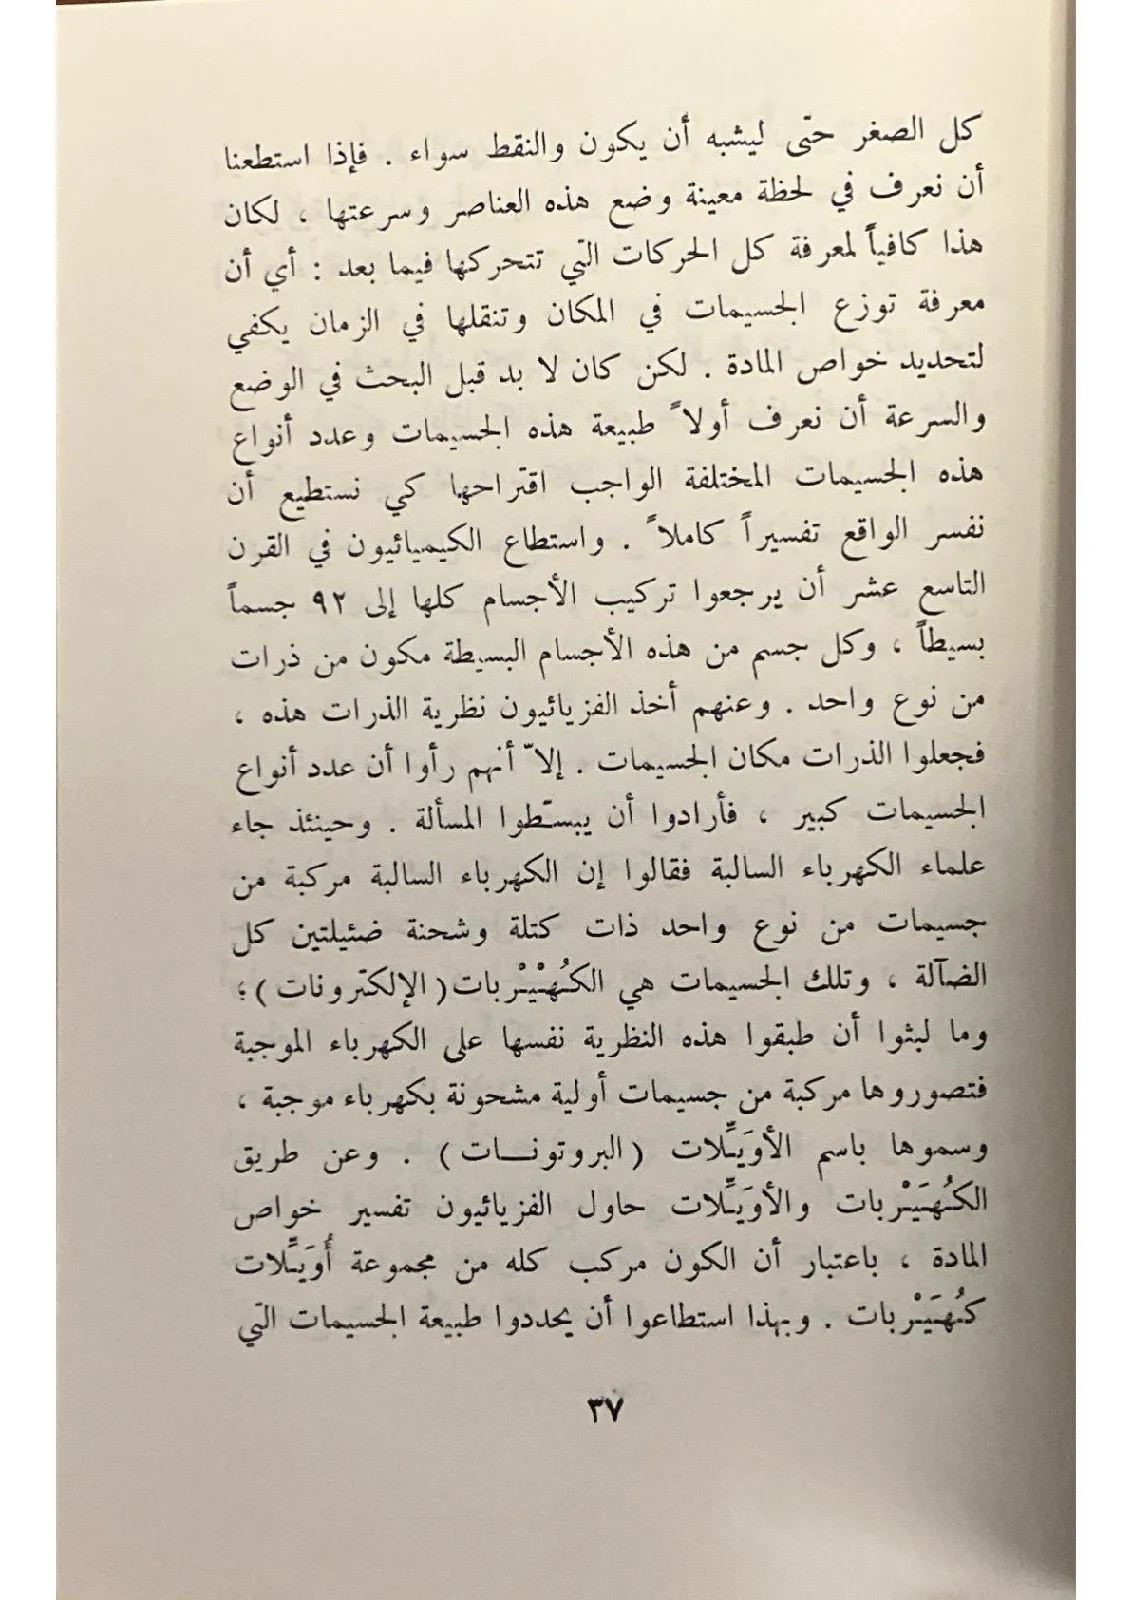 كل الصغر حتّى ليشبه أن يكون والنقط سواء . فإذا استطعنا
أن نعرف في لحظة معينة وضع هذه العناصر وسرعتها ، لكان
هذا كافياً لمعرفة كل الحركات التي تتحركها فيما بعد : أي أن
معرفة توزع الجسيمات في المكان وتنقلها في الزمان يكفي
لتحديد خواص المادة . لكن كان لا بد قبل البحث في الوضع
والسرعة أن نعرف أولاً طبيعة هذه الجسيمات وعدد أنواع
هذه الجسيمات المختلفة الواجب اقتراحها كي نستطيع أن
نفسر الواقع تفسيراً كاملاً . واستطاع الكيميائيون في القرن
التاسع عشر أن يرجعوا تركيب الأجسام كلها إلى ٩٢ جسماً
بسيطاً ، وكل جسم من هذه الأجسام البسيطة مكون من ذرات
من نوع واحد . وعنهم أخذ الفزيائيون نظرية الذرات هذه ،
فجعلوا الذرات مكان الجسيمات . إلاّ أنهم رأوا أن عدد أنواع
الجسيمات كبير ، فأرادوا أن يبسّطوا المسألة . وحينئذ جاء
علماء الكهرباء السالبة فقالوا إن الكهرباء السالبة مركبة من
جسيمات من نوع واحد ذات كتلة وشحنة ضئيلتين كل
الضآلة ، وتلك الجسيمات هي الكُهْيْرِبات (الإلكترونات) ؛
وما لبثوا أن طبقوا هذه النظرية نفسها على الكهرباء الموجبة
فتصوروها مركبة من جسيمات أولية مشحونة بكهرباء موجبة ،
وسموها باسم الأوَيِّلات (البروتونـــات) . وعن طريق
الكُهَيْربات والأوَيِّلات حاول الفزيائيون تفسير خواص
المادة ، باعتبار أن الكون مركب كله من مجموعة أُوَيِّلات
كُهَيْربات . وبهذا استطاعوا أن يحددوا طبيعة الجسيمات التي
٣٧